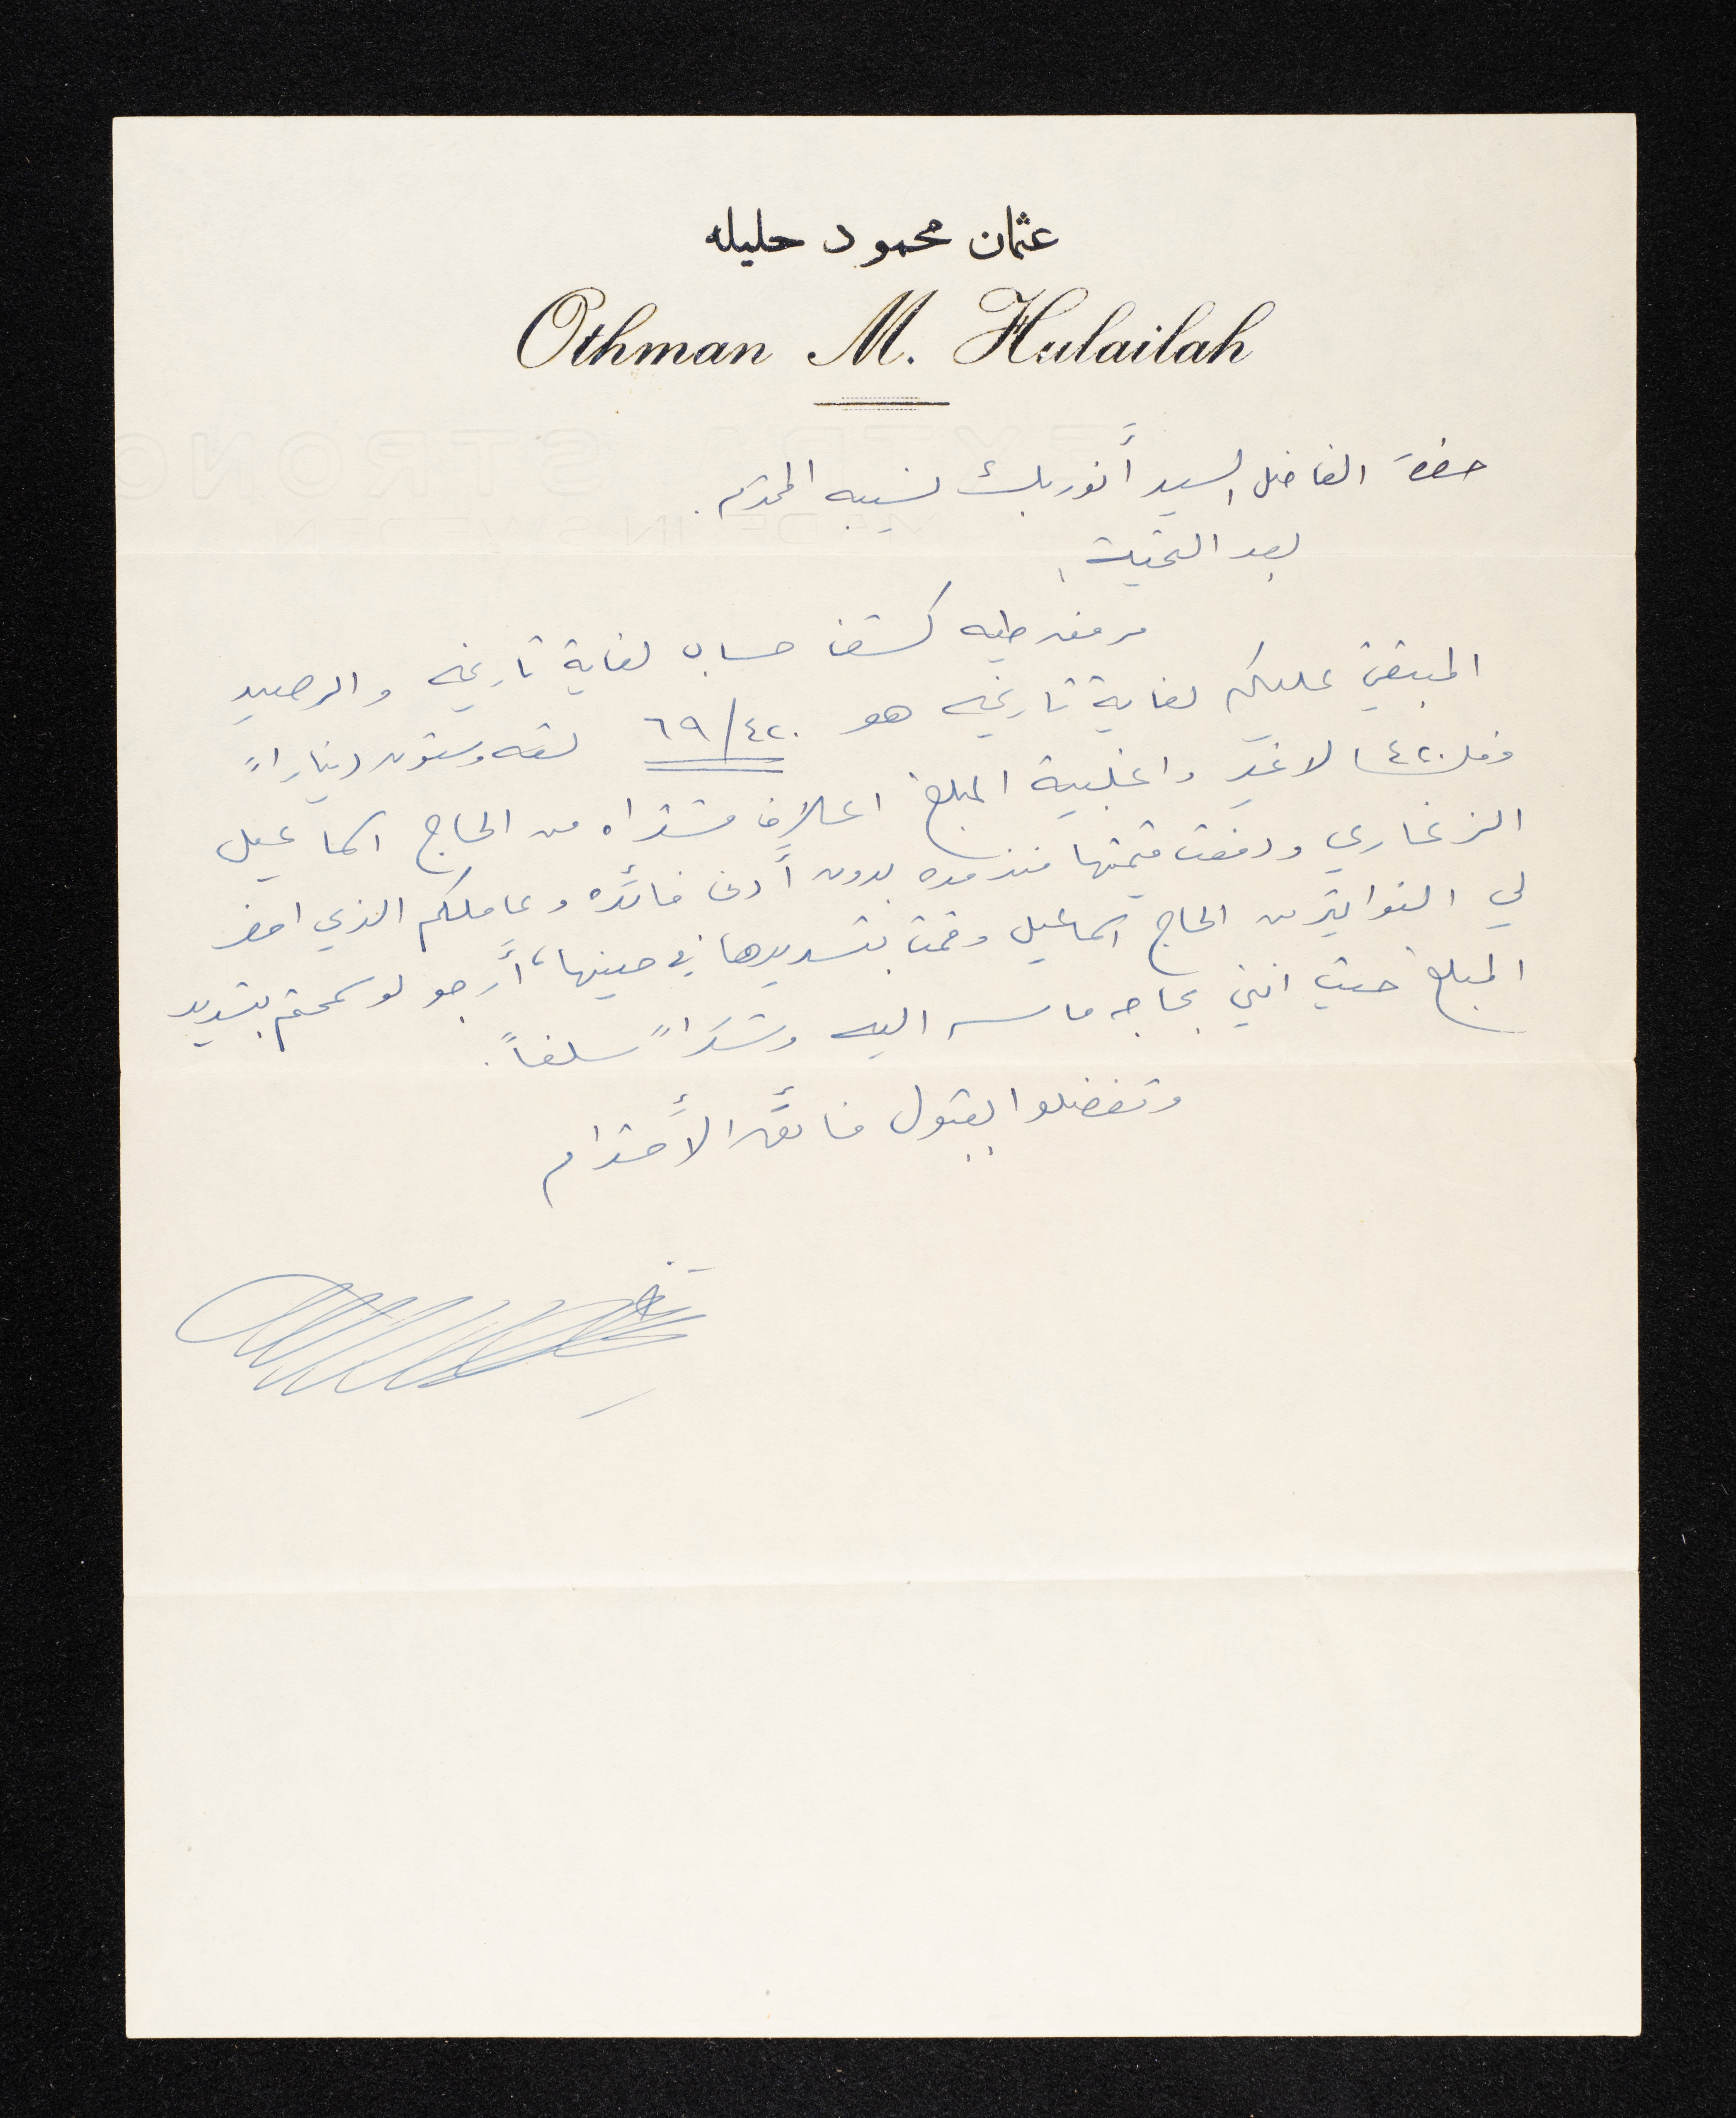 عثمان محمود حليله
Othman M. Hulailah
EXTRA STRONG
MADE IN SWEDEN
حضرة الفاضل السيد أنور بك نسيبه المحترم .
بعد التحية ،
مرفق طيه كشف حساب لغاية تاريخه والرصيد
المتبقي عليكم لغاية تاريخه هو ٦٩/٤٢٠ تسعه وستون ديناراً
و ٤٢٠ فلساً لا غير واغلبية المبلغ اعلاف مشتراه من الحاج اسماعيل
الزغاري ودفعت قيمتها منذ مده بدون أدنى فائده وعاملكم الذي احضر
لي الفواتير من الحاج اسماعيل وقمت بتسديدها في حينها، أرجو لو سمحتم بتسديد
المبلغ حيث انني بحاجه ماسه اليه وشكراً سلفاً .
وتفضلوا بقبول فائق الأحترام